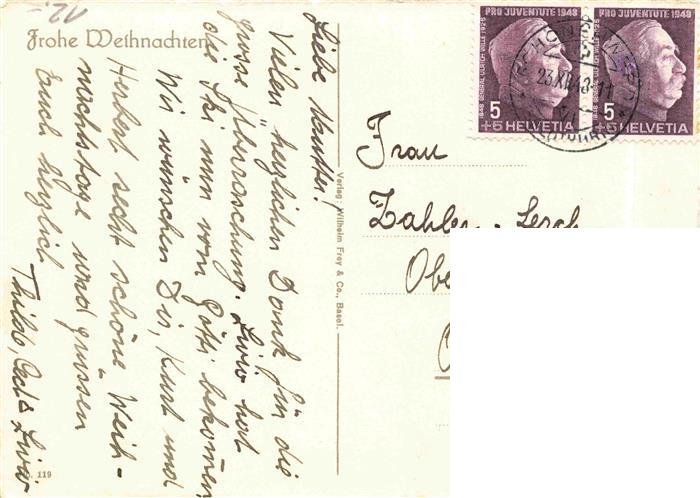 12.-
Frohe Weihnachten
Liebe Mutter!
Vielen herzlichen Dank für die
grosse Überraschung. Livio hat
die Ski nun vom Götti bekommen
Wir wünschen Dir, Kurt und
Herbert recht schöne Weih-
nachtstage und grüssen
Euch herzlich
Thilde, & Livio
119
Verlag: Wilhelm Frey & Co., Basel.
PRO JUVENTUTE 1948
1848 GENERAL ULRICH WILLE 1925
5
+5 HELVETIA
PRO JUVENTUTE 1948
5
+5 HELVETIA
23.XII.48-11
Frau
Zahler - Lerch
Obe